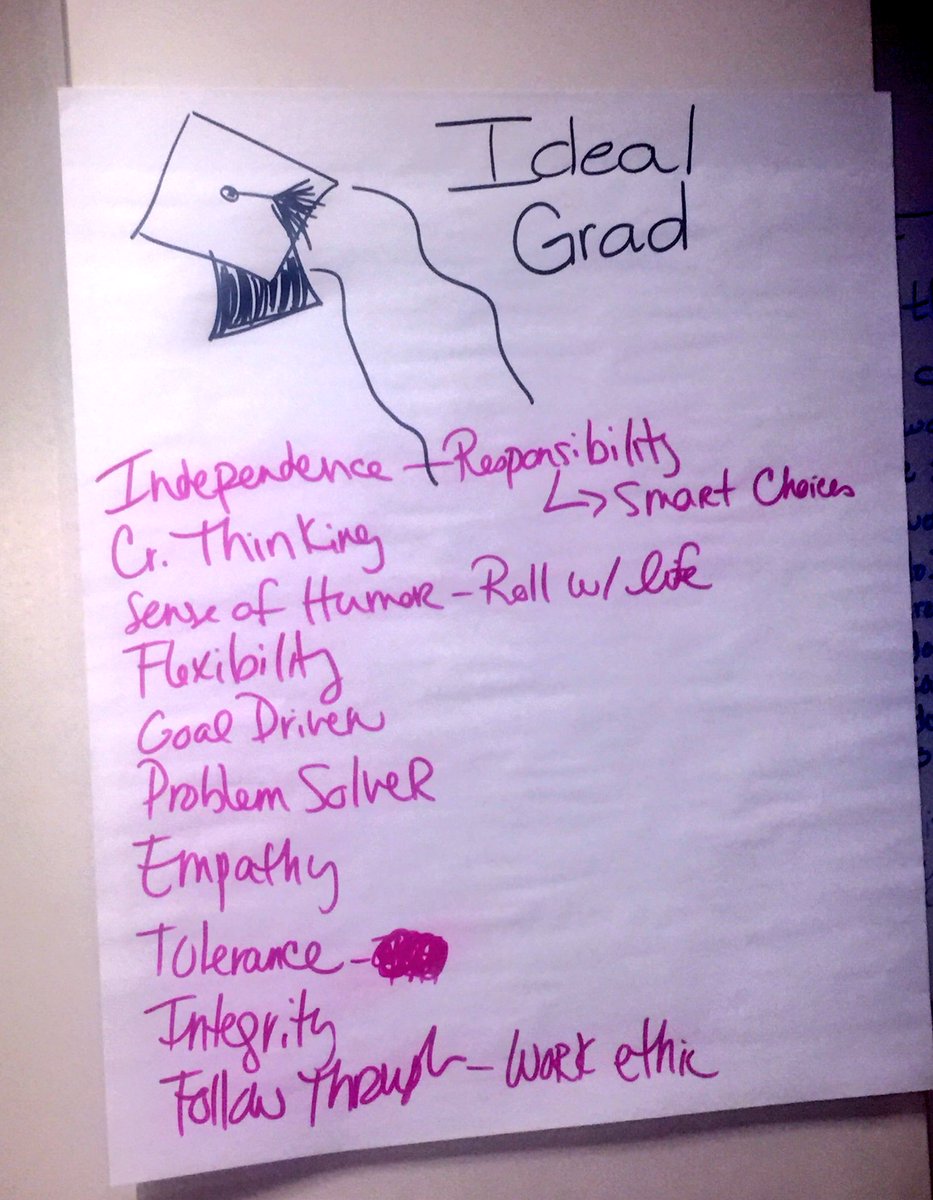 Ideal
Grad
Independence - Responsibility
↳ Smart Choices
Cr. Thinking
Sense of Humor - Roll w/ life
Flexibility
Goal Driven
Problem Solver
Empathy
Tolerance -
Integrity
Follow Through - Work ethic